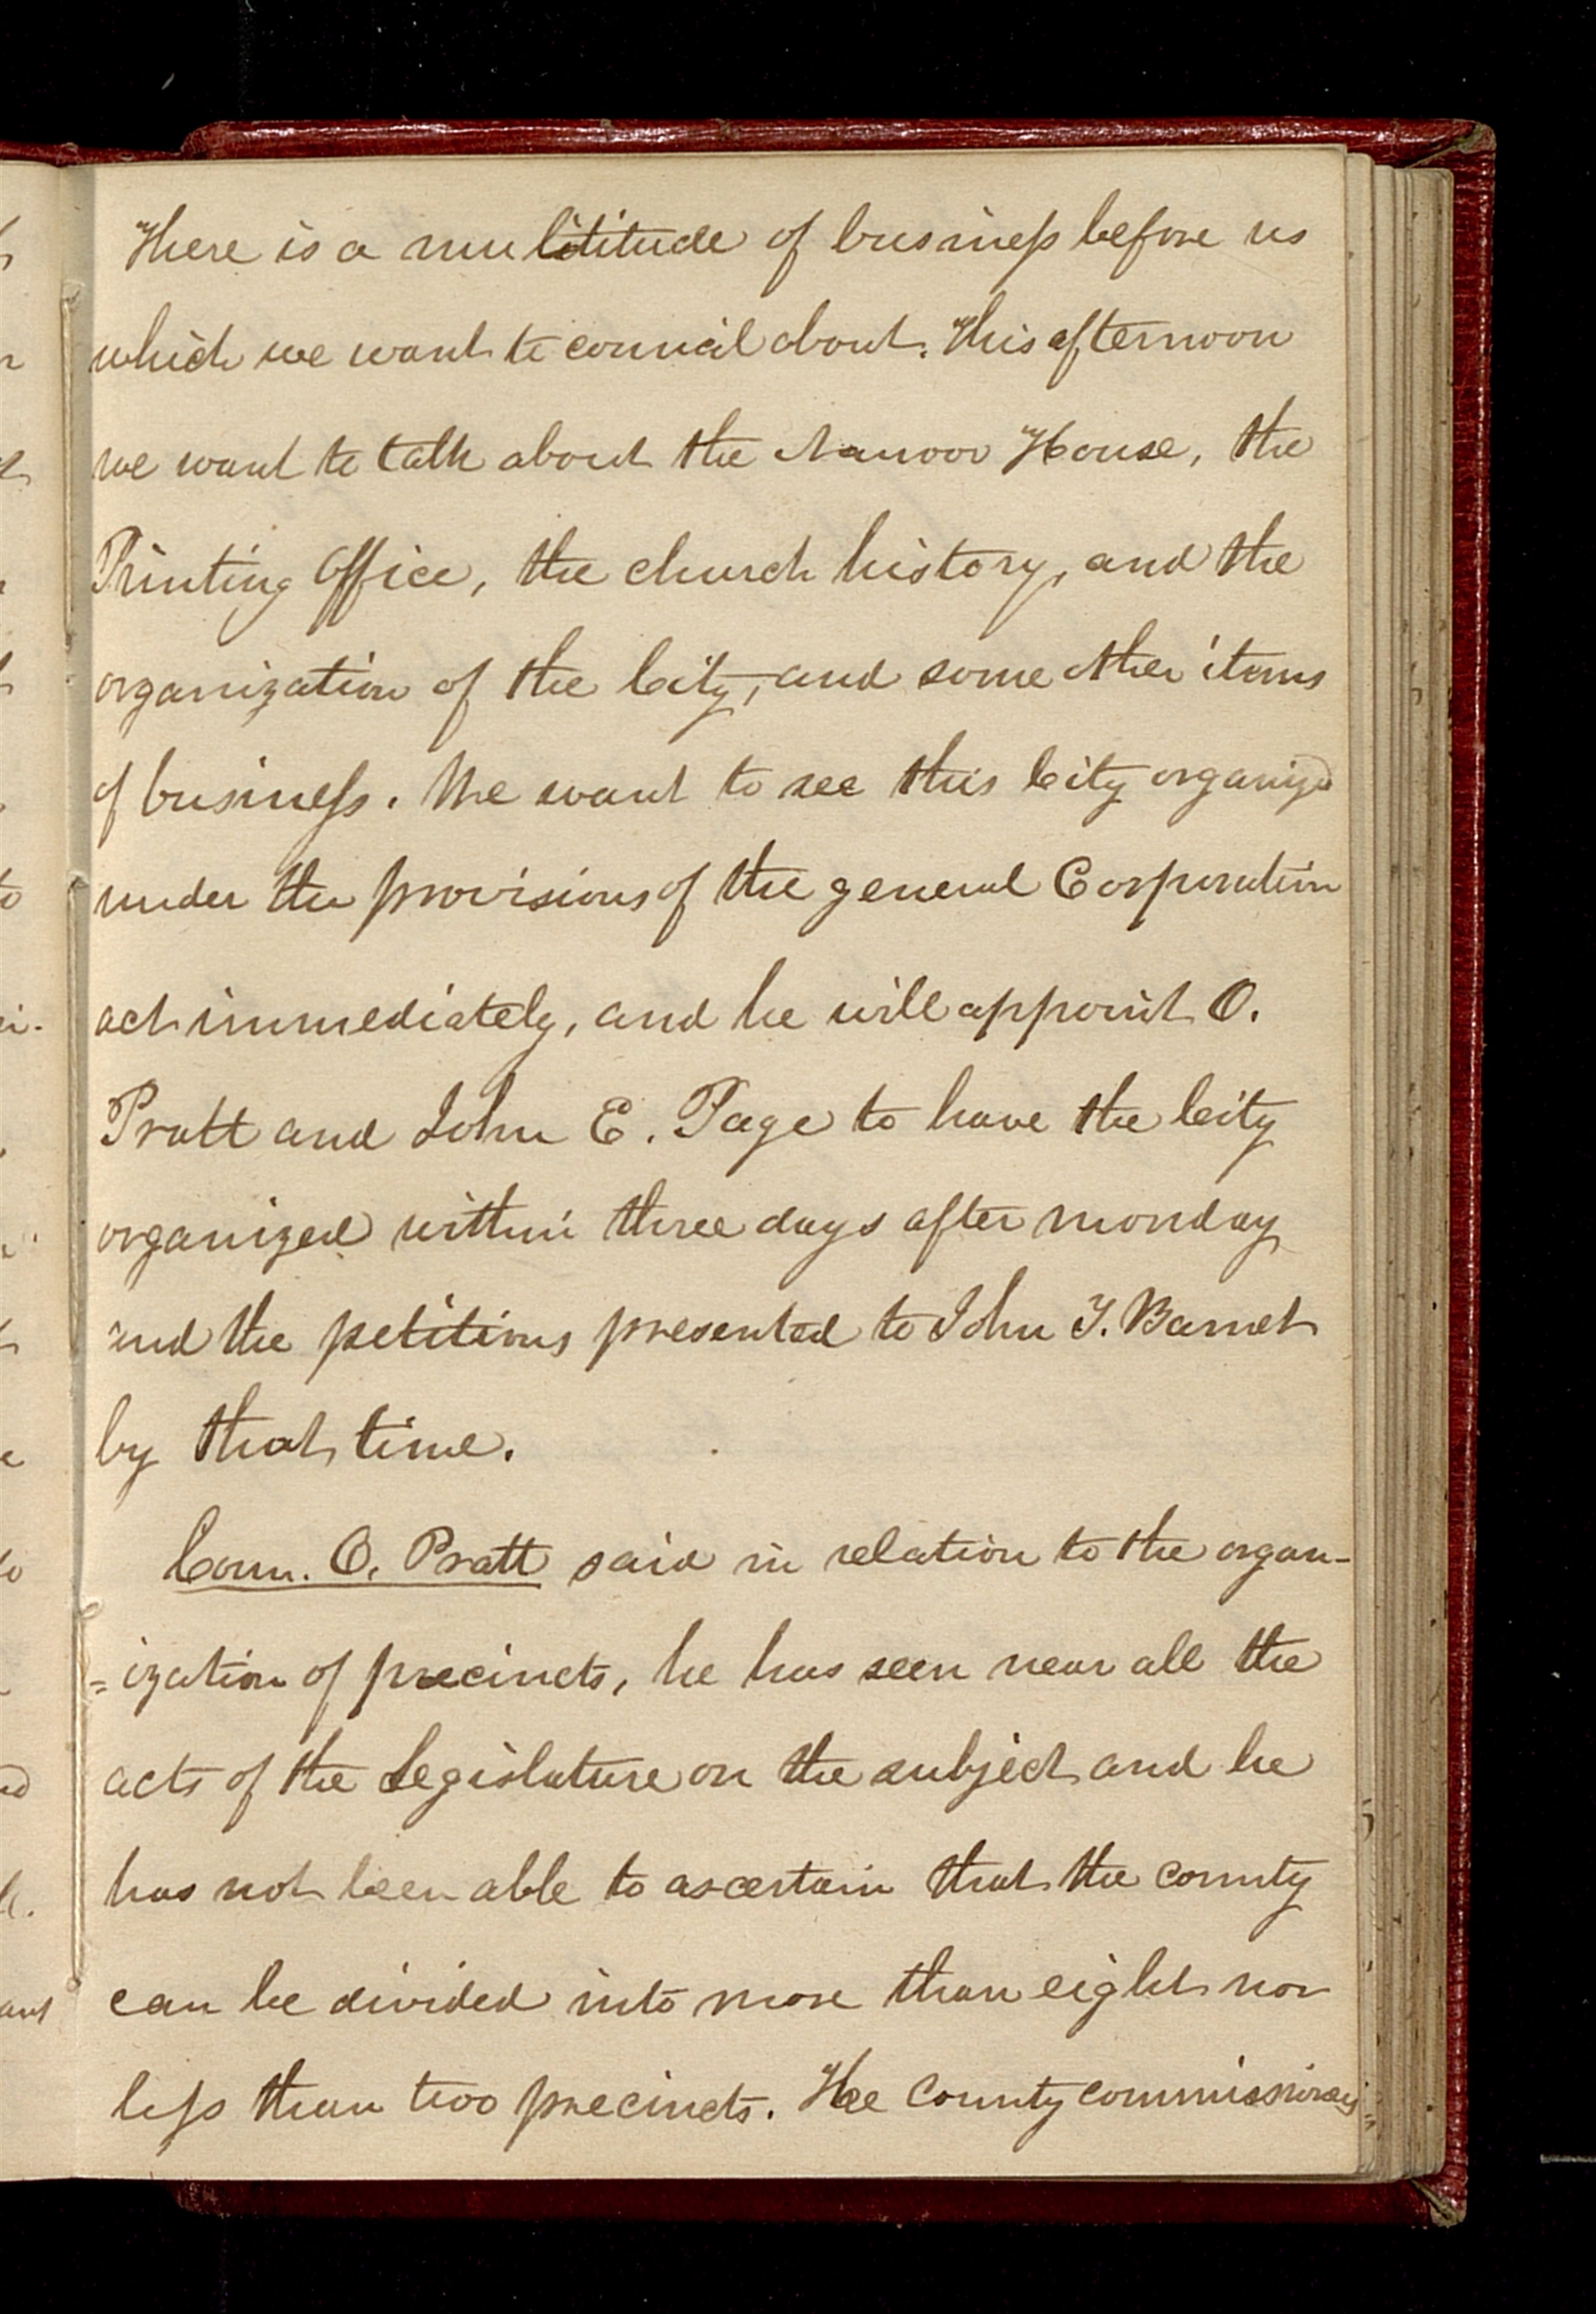 There is a multitude of business before us
which we want to council about. This afternoon
we want to talk about the Nauvoo House, the
Printing Office, the church history, and the
organization of the City, and some other items
of business. We want to see this City organized
under the provisions of the general Corporation
act immediately, and he will appoint O.
Pratt and John E. Page to have the City
organized within three days after monday
and the petitions presented to John T. Barnet
by that time.
Coun. O. Pratt said in relation to the organ-
=ization of precincts, he has seen near all the
acts of the Legislature on the subject and he
has not been able to ascertain that the county
can be divided into more than eight nor
less than two precincts. The County commissioners